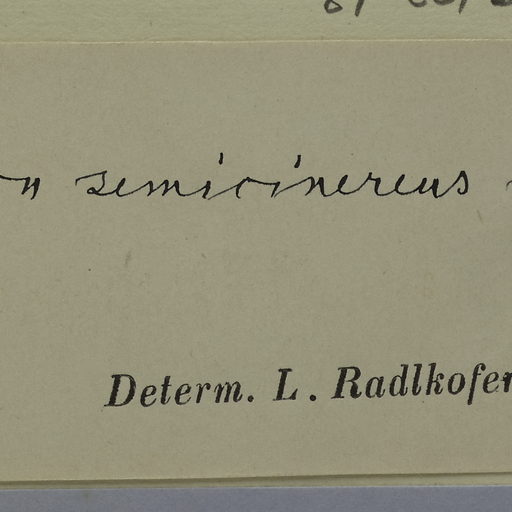 semicinereus
Determ. L. Radlkofer